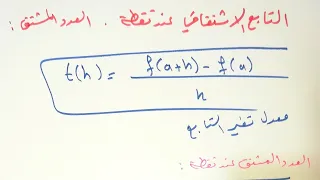 التابع الاشتقاقي عند نقطة . العدد المشتق :
t(h) = f(a+h) - f(a) / h
معدل تغير التابع
العدد المشتق عند نقطة :